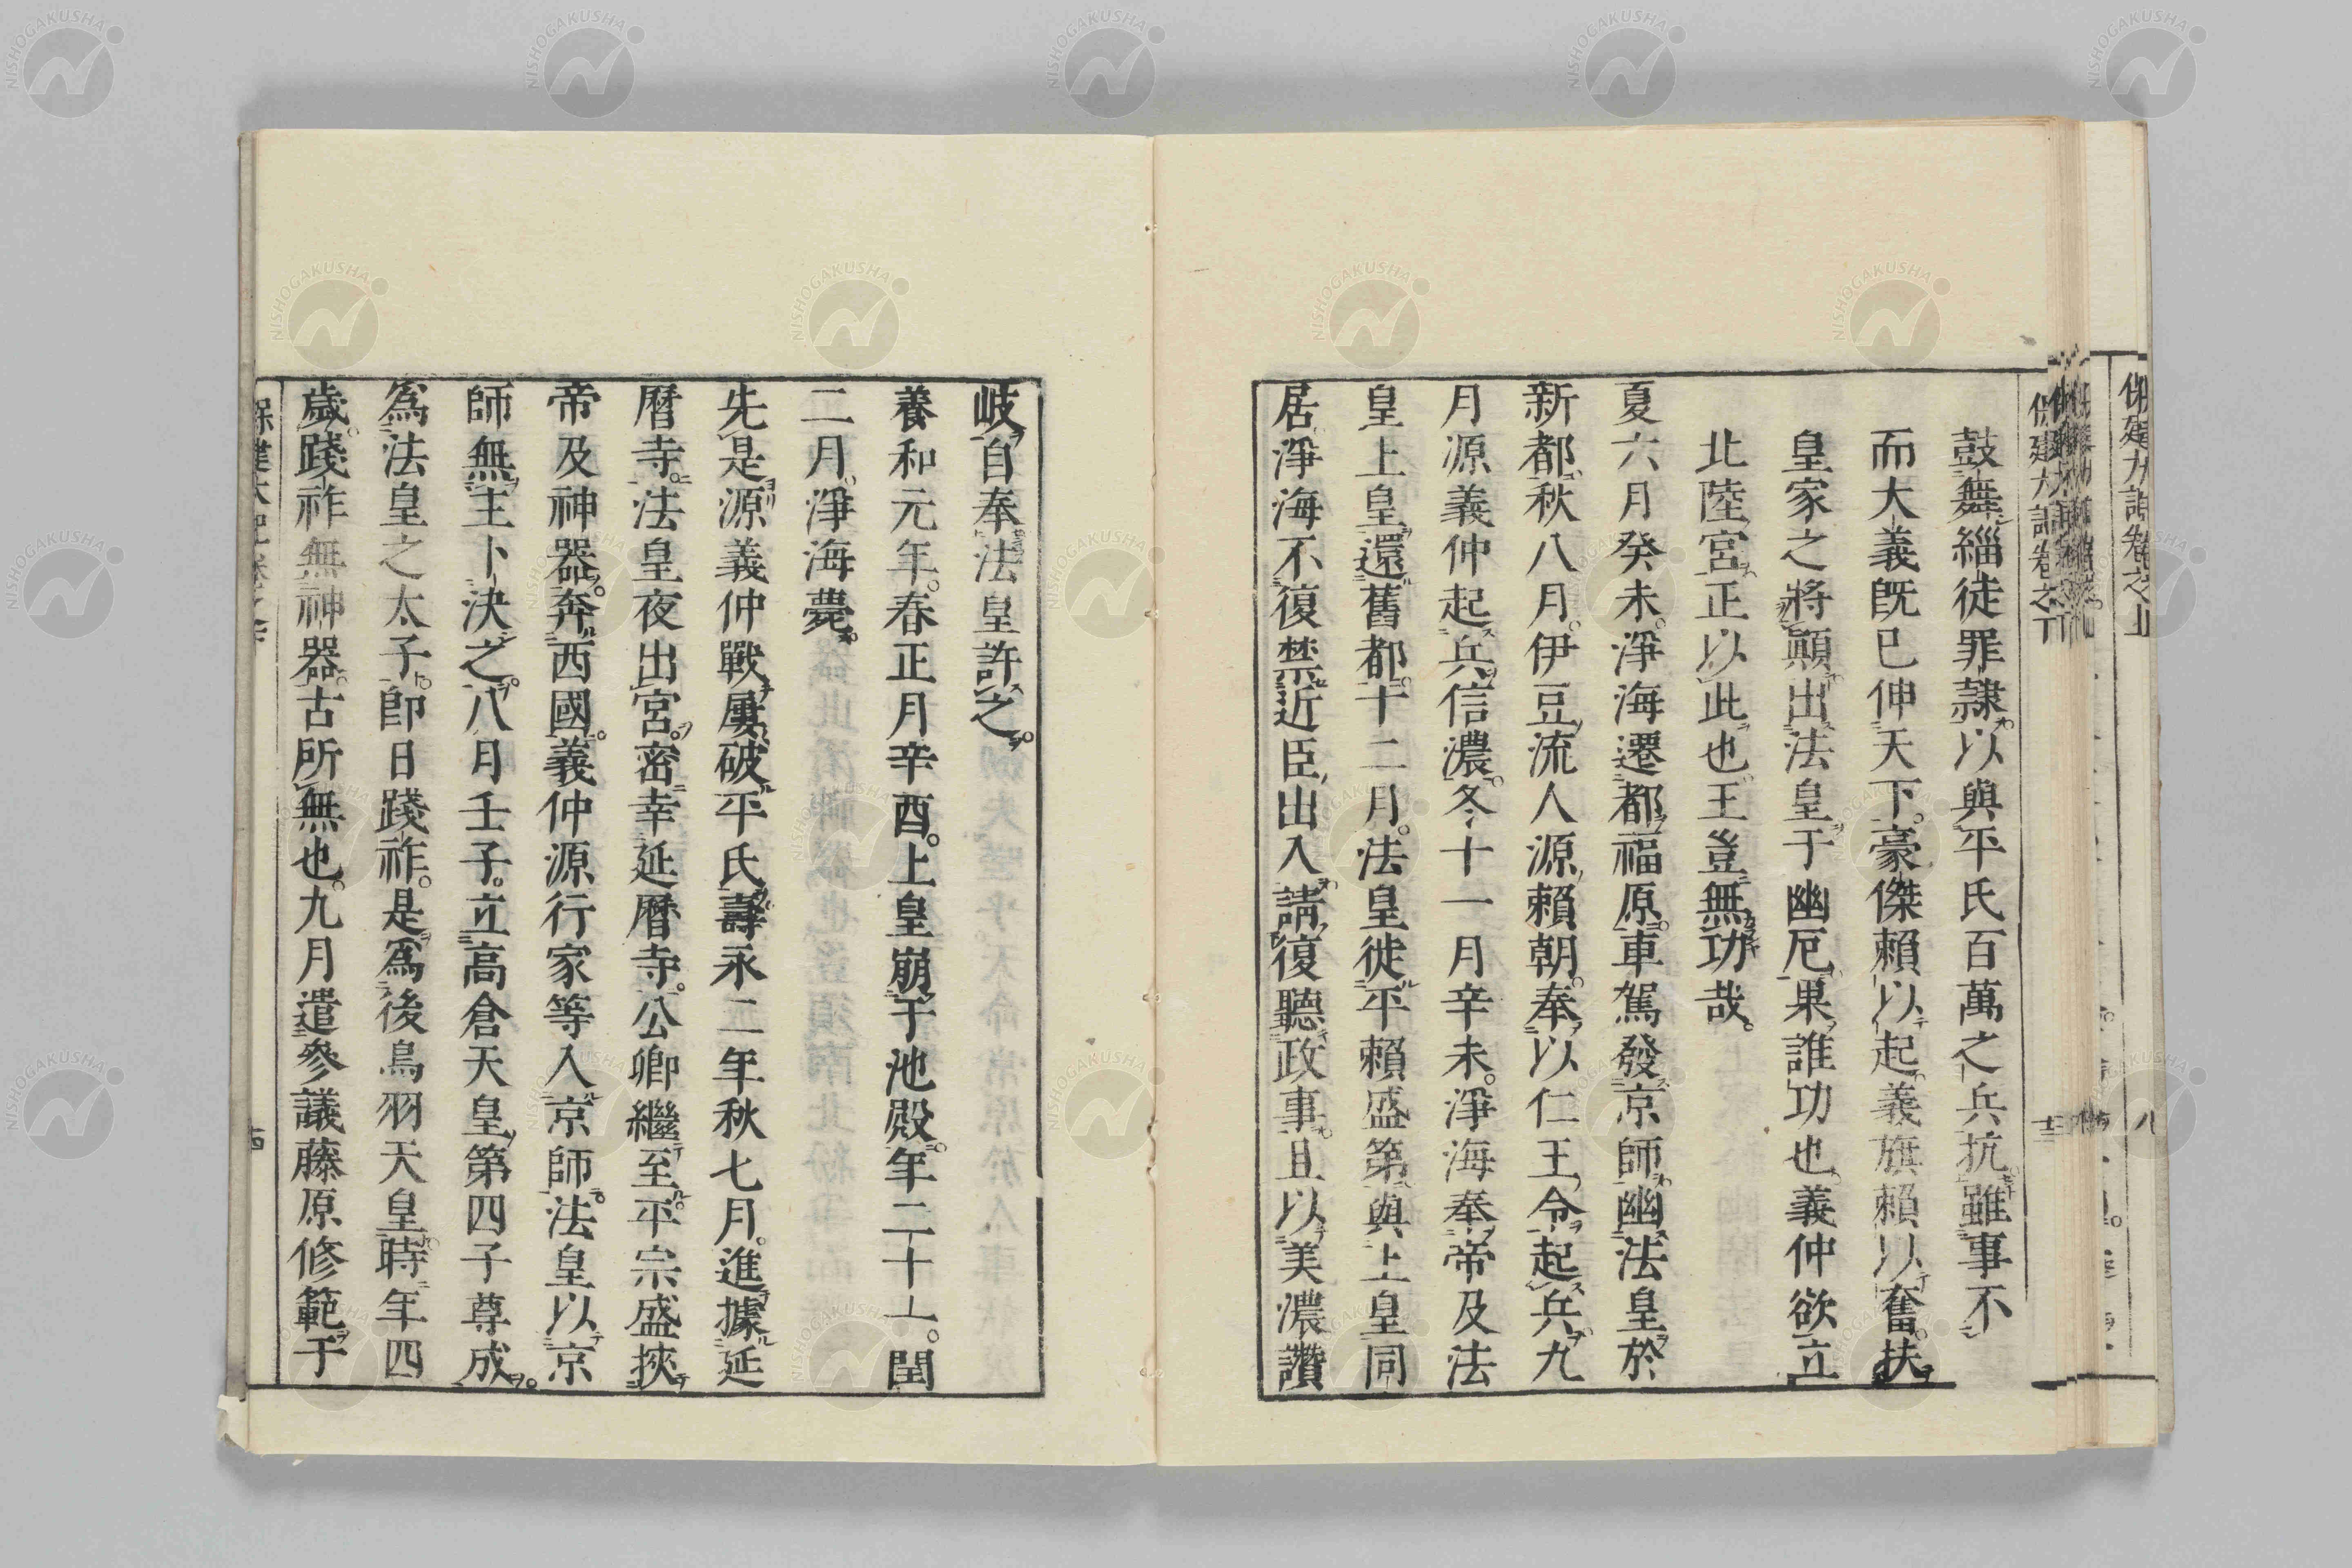 鼓舞緇徒罪隷以與平氏百萬之兵抗雖事不
而大義既已伸天下豪傑賴以起義旗賴以奮扶
皇家之將顛出法皇于幽厄果誰功也義仲欲立
北陸宮正以此也王豈無功哉
夏六月癸未淨海遷都福原車駕發京師幽法皇於
新都秋八月伊豆流人源賴朝奉以仁王令起兵九
月源義仲起兵信濃冬十一月辛未淨海奉帝及法
皇上皇還舊都十二月法皇徙平賴盛第與上皇同
居淨海不復禁近臣出入請復聽政事且以美濃讚
岐自奉法皇許之
養和元年春正月辛酉上皇崩于池殿年二十一閏
二月淨海薨
先是源義仲戰屢破平氏壽永二年秋七月進據延
曆寺法皇夜出宮密幸延曆寺公卿繼至平宗盛挾
帝及神器奔西國義仲源行家等入京師法皇以京
師無主卜決之八月壬子立高倉天皇第四子尊成
爲法皇之太子卽日踐祚是爲後鳥羽天皇時年四
歲踐祚無神器古所無也九月遣參議藤原修範于